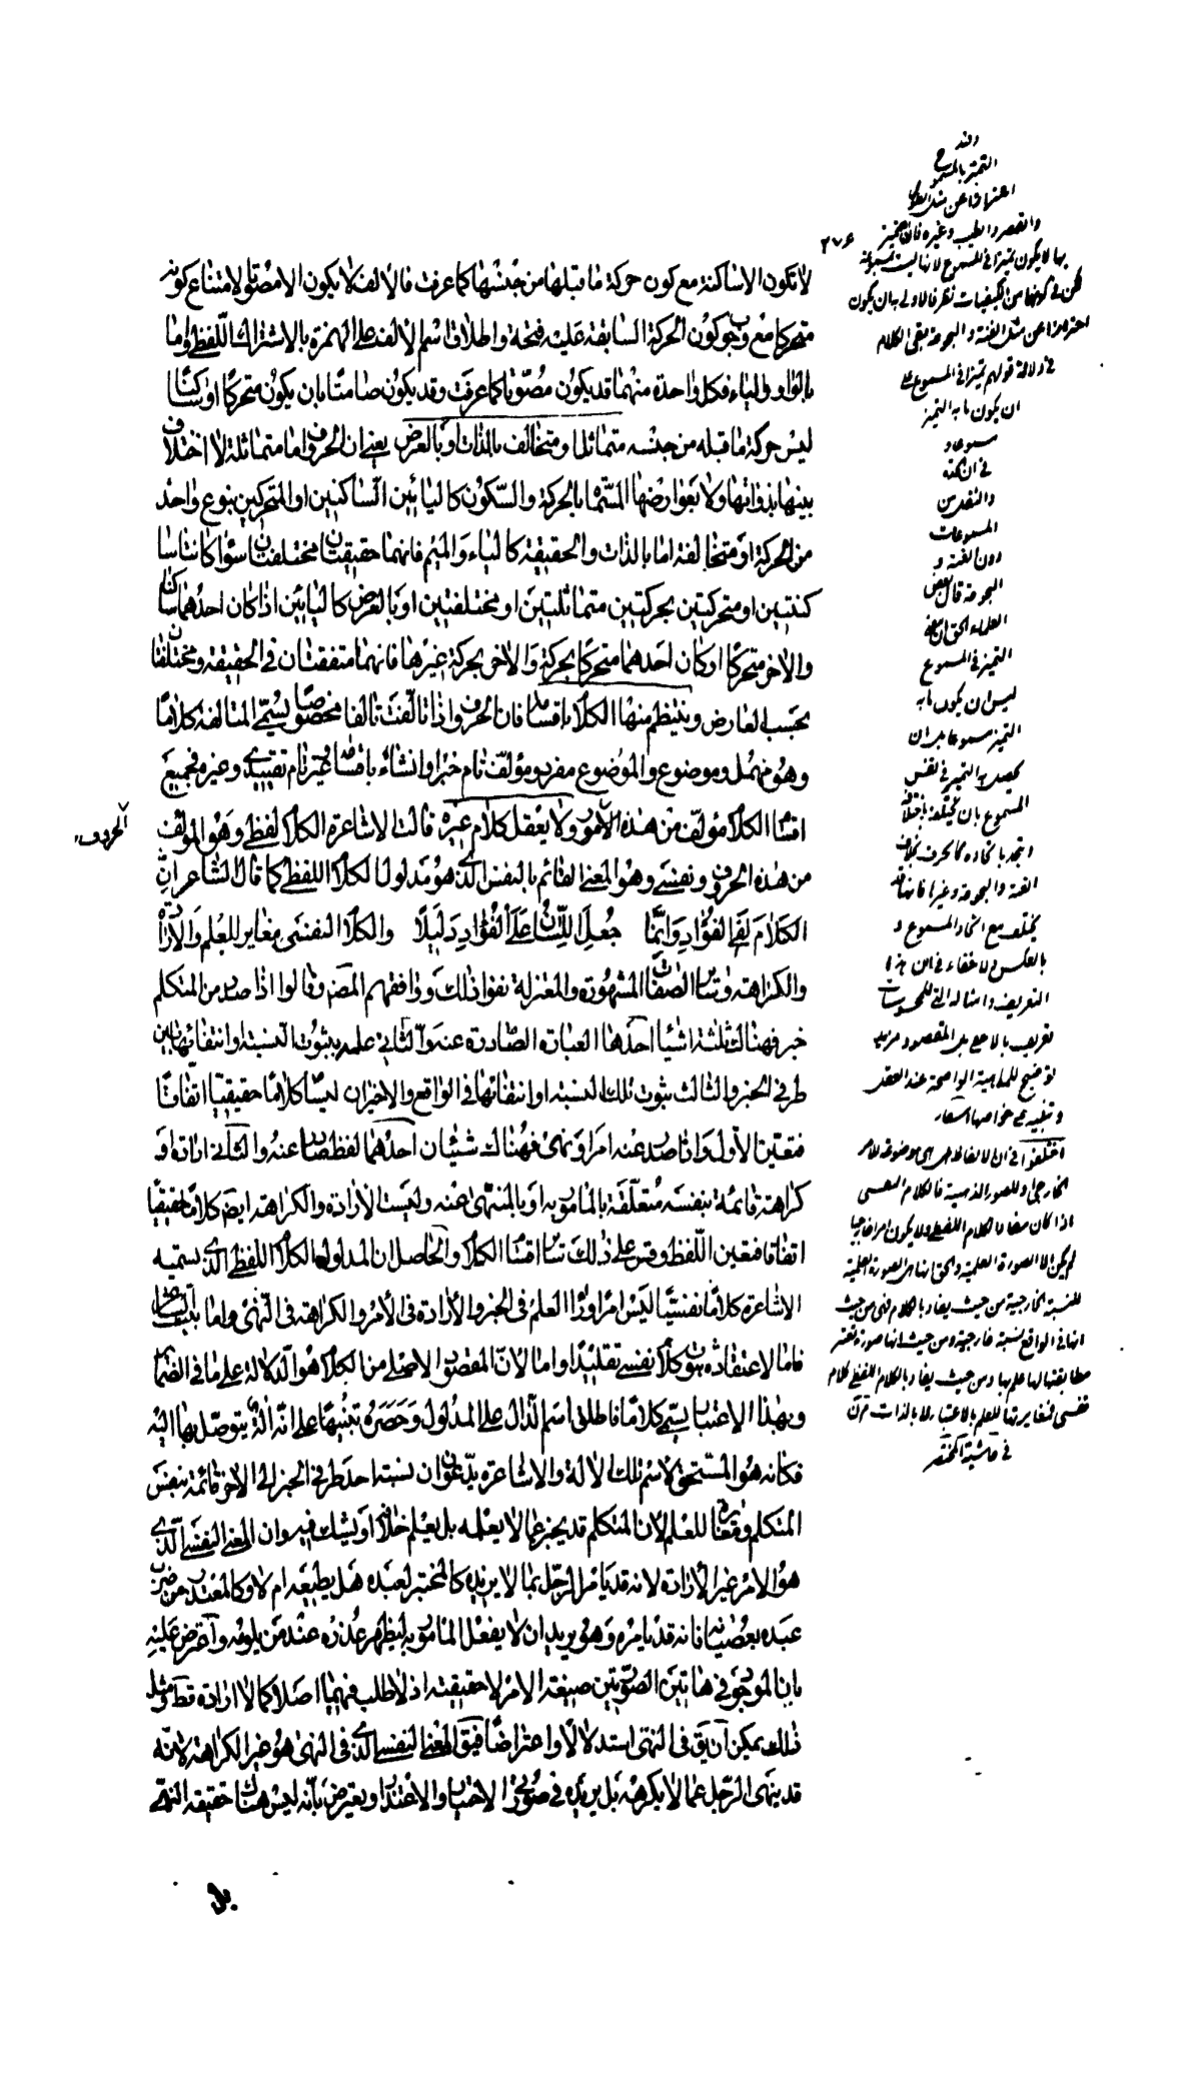 ٢٧٦
لا تكون الا ساكنة مع كون حركة ما قبلها من جنسها كما عرفت فالالف لا يكون الا مصوتا لامتناع كونه
متحركا مع وجوب كون الحركة السابقة عليه فتحة واطلاق اسم الالف على الهمزة بالاشتراك اللفظي واما
الواو والياء فكل واحدة منهما قد يكون مصوتا كما عرفت وقد يكون صامتا بان يكون متحركا او ساكنا
ليس حركة ما قبله من جنسه متماثلا ومتخالف بالذات او بالعرض يعني ان الحروف اما متماثلة لا اختلاف
بينها بذواتها ولا بعوارضها المسماة بالحركة والسكون كاليائين الساكنين او المتحركين بنوع واحد
من الحركة او متخالفة اما بالذات والحقيقة كالياء والميم فانهما حقيقتان مختلفتان سواء كانتا سا
كنتين او متحركتين بحركتين متماثلتين او مختلفتين او بالعرض كاليائين اذا كان احدهما ساكنا
والاخر متحركا او كان احدهما متحركا بحركة والاخر بحركة غيرها فانهما متفقتان في الحقيقة ومختلفتان
بحسب العارض وينتظم منها الكلام باقسامه فان الحروف اذا تالفت تالفا مخصوصا يسمى المتالفة كلاما
وهو مهمل وموضوع والموضوع مفرد ومؤلف تام خبر او انشاء باقسامه غير تام تقييدي وغيره فجميع
اقسام الكلام مؤلف من هذه الامور ولا يعقل كلام غيره قالت الاشاعرة الكلام لفظي وهو المؤلف
الحروف
من هذه الحروف ونفسي وهو المعنى القائم بالنفس الذي هو مدلول الكلام اللفظي كما قال الشاعر ان
الكلام لفي الفؤاد وانما جعل اللسان على الفؤاد دليلا والكلام النفسي مغاير للعلم والارادة
والكراهة وسائر الصفات المشهورة والمعتزلة نفوا ذلك ووافقهم المصـ وقالوا اذا صدر من المتكلم
خبر فهناك ثلثة اشياء احدها العبارة الصادرة عنه والثاني علمه بثبوت النسبة او انتفائها بين
طرفي الخبر والثالث ثبوت تلك النسبة او انتفائها في الواقع والاخيران ليسا كلاما حقيقيا اتفاقا
فتعين الاول واذا صدر عنه امر او نهي فهناك شيئان احدهما لفظ صادر عنه والثاني ارادة او
كراهة قائمة بنفسه متعلقة بالمامور به او بالمنهي عنه وليست الارادة والكراهة ايضـ كلاما حقيقيا
اتفاقا فتعين اللفظ وقس على ذلك سائر اقسام الكلام والحاصل ان المدلول الكلام اللفظي الذي يسميه
الاشاعرة كلاما نفسيا ليس امرا وراء العلم في الخبر والارادة في الامر والكراهة في النهي واما بيت الشاعر
فاما لاعتقاده ثبوت كلام نفسي تقليدا واما لان المقصود الاصلي من الكلام هو الدلالة على ما في الضمائر
وبهذا الاعتبار يسمى كلاما فاطلق اسم الدال على المدلول وحصره تنبيها على انه الة يتوصل بها اليه
فكانه هو المستحق لاسم تلك الالة والاشاعرة يدعون ان نسبة احد طرفي الخبر الى الاخر قائمة بنفس
المتكلم ومغايرة للعلم لان المتكلم قد يخبر عما لا يعلمه بل يعلم خلافه او يشك فيه وان المعنى النفسي الذي
هو الامر غير الارادة لانه قد يامر الرجل بما لا يريده كالمختبر لعبده هل يطيعه ام لا وكالمعتذر من ضرب
عبده بعصيانه فانه قد يامره وهو يريد ان لا يفعل المامور به ليظهر عذره عند من يلومه واعترض عليه
بان الموجود في هاتين الصورتين صيغة الامر لا حقيقته اذ لا طلب فيهما اصلا كما لا ارادة قطعا ومثل
ذلك يمكن ان يق في النهي استدلالا واعتراضا فيق المعنى النفسي الذي في النهي هو غير الكراهة لانه
قد ينهى الرجل عما لا يكرهه بل يريده في صورتي الاختبار والاعتذار ويعترض بانه ليس هناك حقيقة النهي
بل
التميز بالمسموع
والقصر والطيب وغيره فان التميز
بها لا يكون تميزا في المسموع لانها ليست مسموعة
لكن في كونها من الكيفيات نظر فالاولى به ان يكون
احترازا عن مثل الغنة والبحوحة بقي الكلام
في دلالة قولهم تميزا في المسموع على
ان يكون ما به التميز
مسموعا و
المسموعات
دون الغنة و
البحوحة قال بعض
العلماء الحق ان معنى
التميز في المسموع
ليس ان يكون ما به
التميز مسموعا بل ان
يحصل به التميز في نفس
المسموع بان يختلف باختلافه
ويتحد باتحاده كالحرف بخلاف
الغنة والبحوحة وغيرها فانها قد
يختلف مع اتحاد المسموع و
بالعكس ولا خفاء في ان هذا
التعريف وامثاله التي للمحسوسات
تعريف بالاخفى بل المقصود مزيد
توضيح للماهية الواضحة عند العقل
وتنبيه على خواصها
اختلفوا في ان الالفاظ هل هي موضوعة للامر
الخارجي او للصور الذهنية فالكلام النفسي
اذا كان مغايرا للكلام اللفظي ولا يكون امرا خارجيا
لم يكن الا الصورة العلمية والحق انها هي الصورة العلمية
للنسبة الخارجية من حيث يفاد بالكلام فهي من حيث
انها في الواقع نسبة خارجية ومن حيث انها صورة تعتبر
مطابقتها لها علم بها ومن حيث يفاد بالكلام اللفظي كلام
نفسي فمغايرتها للعلم بالاعتبار لا بالذات
في حاشية المختصر